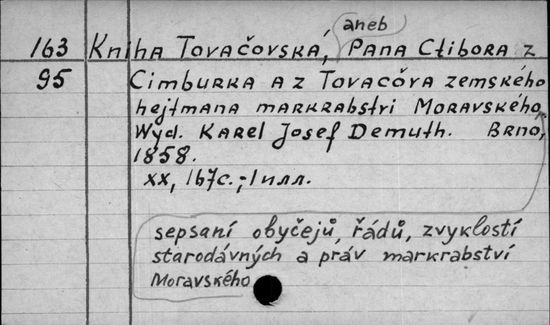 aneb
163 Kniha Tovačovská, Pana Ctibora z
95 Cimburka a z Tovačova zemského
hejtmana markrabstri Moravského,
Wyd. Karel Josef Demuth. Brno,
1858.
XX, 167c.; 1 илл.
sepsaní obyčejů, řádů, zvyklostí
starodávných a práv markrabství
Moravského